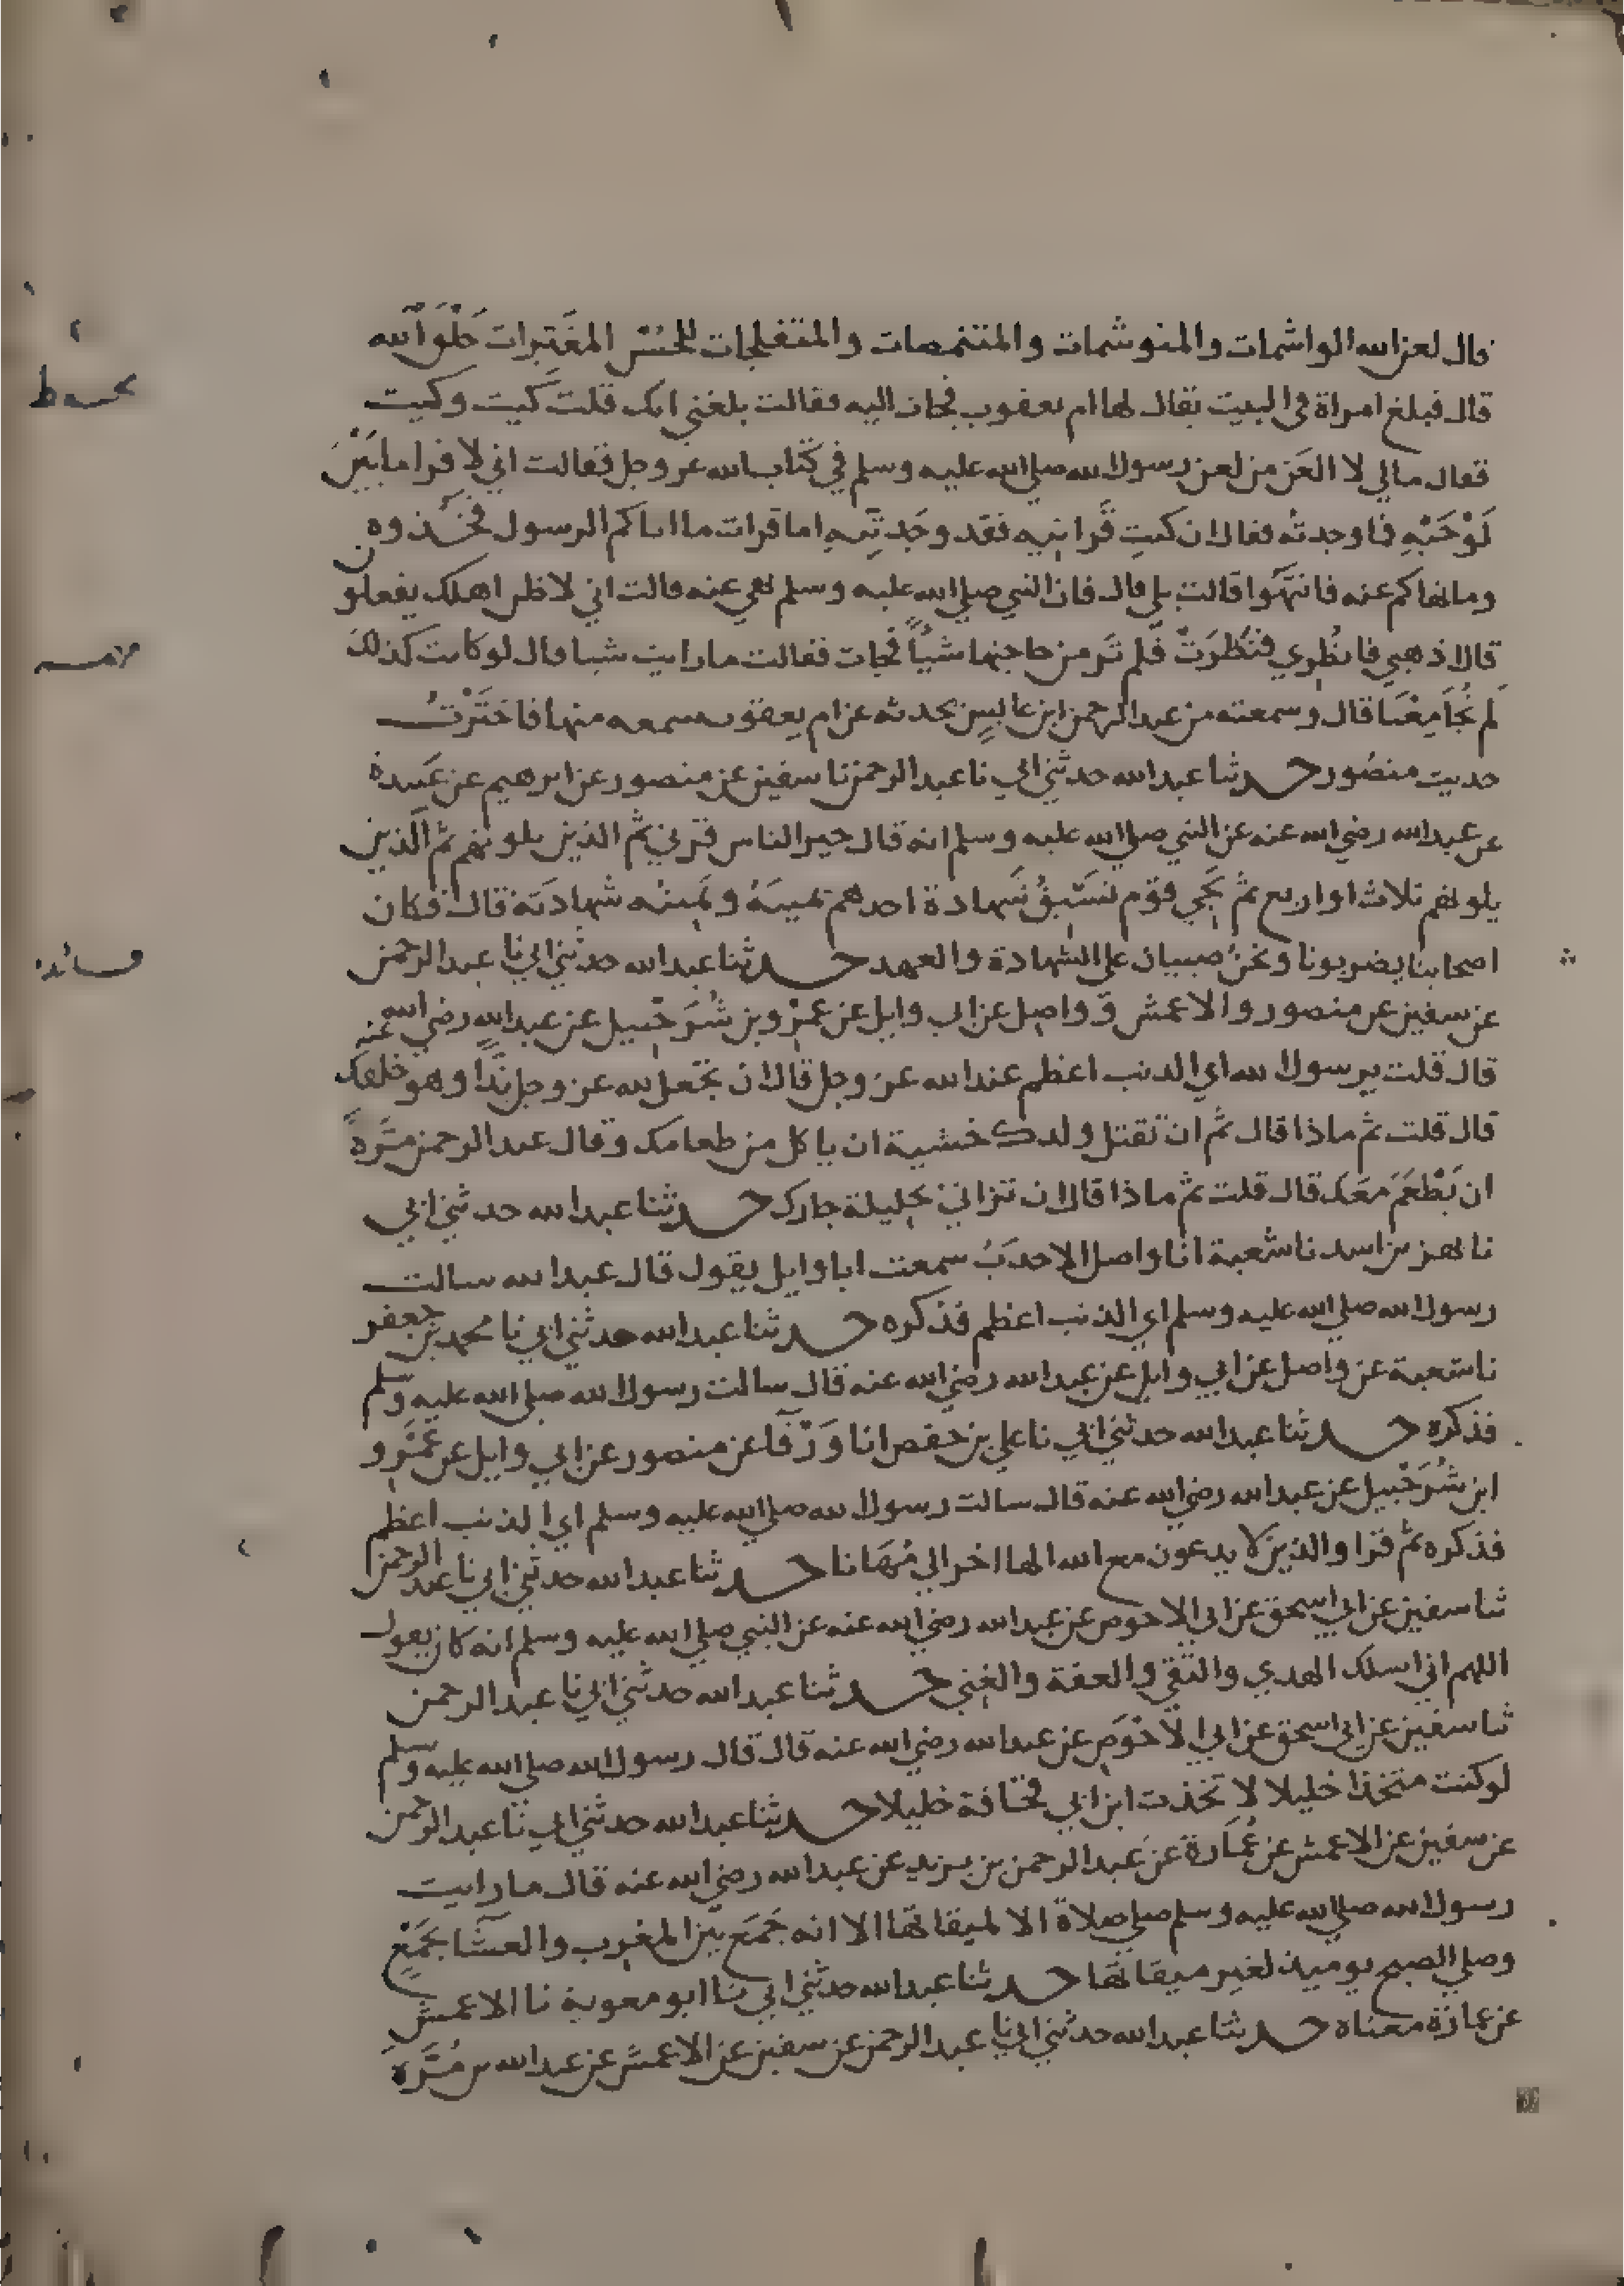 قال لعن الله الواشمات والمتوشمات والمتنمصات والمتفلجات للحسن المغيرات خلق الله
قال فبلغ امراة في البيت يقال لها ام يعقوب فجات اليه فقالت بلغني انك قلت كيت وكيت
فقال مالي لا العن من لعن رسول الله صلى الله عليه وسلم في كتاب الله عز وجل فقالت اني لاقرا ما بين
لوحيه فما وجدته فقال ان كنت قراتيه فقد وجدتيه اما قرات ما اتاكم الرسول فخذوه
وما نهاكم عنه فانتهوا قالت بلى قال فان النبي صلى الله عليه وسلم نهى عنه قالت اني لاظن اهلك يفعلون
قال اذهبي فانظري فنظرت فلم تر من حاجتها شيا فجات فقالت ما رايت شيا قال لو كانت كذلك
لم تجامعنا قال وسمعته من عبد الرحمن ابن عابس يحدثه عن ام يعقوب سمعه منها فاخترت
حديث منصور حدثنا عبد الله حدثني ابي نا عبد الرحمن نا سفين عن منصور عن ابرهيم عن عبيدة
عن عبد الله رضي الله عنه عن النبي صلى الله عليه وسلم انه قال خير الناس قرني ثم الذين يلونهم ثم الذين
يلونهم ثلاث او اربع ثم يجي قوم تسبق شهادة احدهم يمينه ويمينه شهادته قال فكان
اصحابنا يضربونا ونحن صبيان على الشهادة والعهد حدثنا عبد الله حدثني ابي نا عبد الرحمن
عن سفين عن منصور والاعمش وواصل عن ابي وايل عن عمرو بن شرحبيل عن عبد الله رضي الله عنه
قال قلت يرسول الله اي الذنب اعظم عند الله عز وجل قال ان تجعل لله عز وجل ندا وهو خلقك
قال قلت ثم ماذا قال ثم ان تقتل ولدك خشية ان ياكل من طعامك وقال عبد الرحمن مرة
ان يطعم معك قال قلت ثم ماذا قال ان تزاني بحليلة جارك حدثنا عبد الله حدثني ابي
نا بهز بن اسد نا شعبة انا واصل الاحدب سمعت ابا وايل يقول قال عبد الله سالت
رسول الله صلى الله عليه وسلم اي الذنب اعظم فذكره حدثنا عبد الله حدثني ابي نا محمد بن جعفر
نا شعبة عن واصل عن ابي وايل عن عبد الله رضي الله عنه قال سالت رسول الله صلى الله عليه وسلم
فذكره حدثنا عبد الله حدثني ابي نا علي بن حفص انا ورقا عن منصور عن ابي وايل عن عمرو
ابن شرحبيل عن عبد الله رضي الله عنه قال سالت رسول الله صلى الله عليه وسلم اي الذنب اعظم
فذكره ثم قرا والذين لا يدعون مع الله الها اخر الى مهانا حدثنا عبد الله حدثني ابي نا عبد الرحمن
ثنا سفين عن ابي اسحق عن ابي الاحوص عن عبد الله رضي الله عنه عن النبي صلى الله عليه وسلم انه كان يقول
اللهم اني اسلك الهدي والتقي والعفة والغني حدثنا عبد الله حدثني ابي نا عبد الرحمن
ثنا سفين عن ابي اسحق عن ابي الاحوص عن عبد الله رضي الله عنه قال قال رسول الله صلى الله عليه وسلم
لو كنت متخذا خليلا لاتخذت ابن ابي قحافة خليلا حدثنا عبد الله حدثني ابي نا عبد الرحمن
عن سفين عن الاعمش عن عمارة عن عبد الرحمن بن يزيد عن عبد الله رضي الله عنه قال ما رايت
رسول الله صلى الله عليه وسلم صلى صلاة الا لميقاتها الا انه جمع بين المغرب والعشا بجمع
وصلى الصبح يوميذ لغير ميقاتها حدثنا عبد الله حدثني ابي نا ابو معوية نا الاعمش
عن عمارة معناه حدثنا عبد الله حدثني ابي نا عبد الرحمن عن سفين عن الاعمش عن عبد الله بن مرة